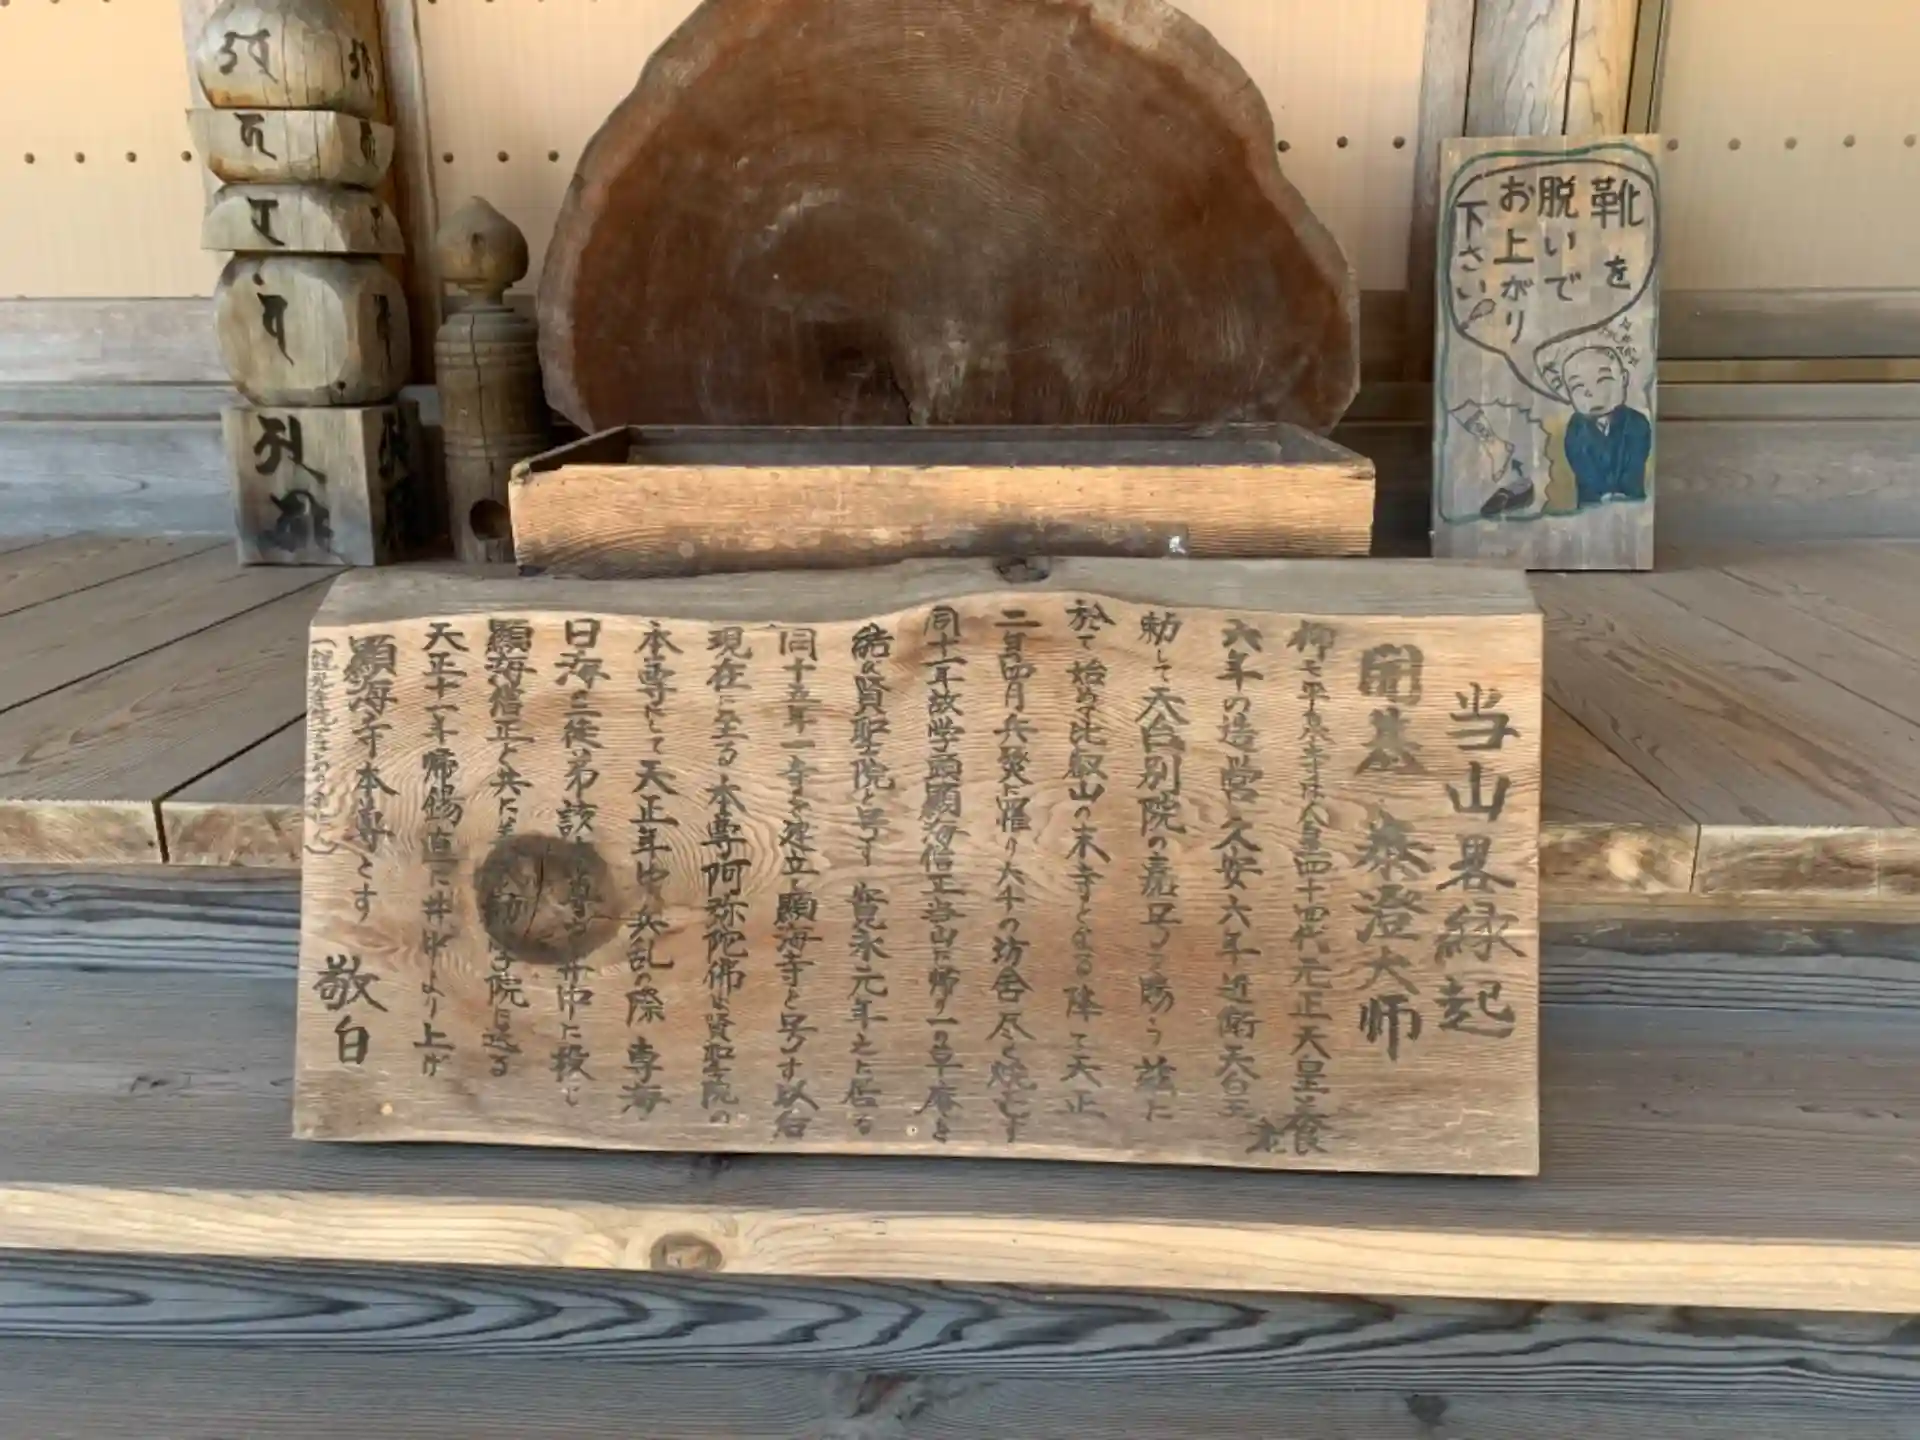 当山畧縁起
開基 泰澄大師
抑モ平泉寺は人皇四十四代元正天皇養食
六年の造営 久安六年 近衛天皇
勅して天台別院の 号を賜う 茲に
於て始めて比叡山の末寺となる 降て天正
二年四月兵燹に罹り六千の坊舎尽く焼亡す
同十一年故学頭顕海僧正当山に帰り一の草庵を
結び賢聖院と号す 寛永元年之に居る
同十五年一寺を建立し顕海寺と号す 以后
現在に至る 本尊阿弥陀佛は賢聖院の
本尊にして天正年中 兵乱の際 専海
日海二徒弟該本尊を井中に投じ
顕海僧正と共に 院に逃る
天正十一年帰錫直に井中より上げ
顕海寺本尊とす 敬白
靴を
脱いで
お上がり
下さい